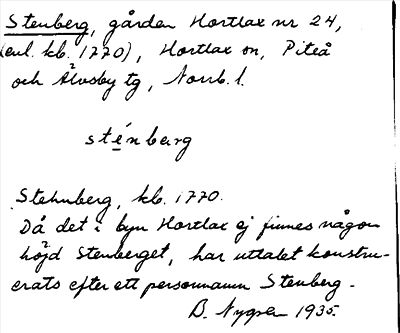 Stenberg, gården Hortlax nr 24,
(enl. kb. 1770), Hortlax sn, Piteå
och Älvsby tg, Norrb. l.
sténbarg
Stehnberg, kb. 1770.
Då det i byn Hortlax ej finnes någon
höjd Stenberget, har uttalet konstru-
erats efter ett personnamn Stenberg.
B. Nygren 1935.